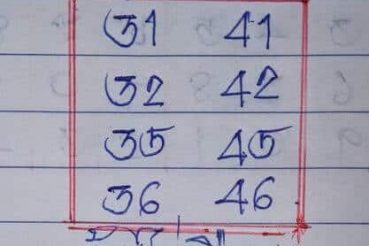 31 41
32 42
35 45
36 46